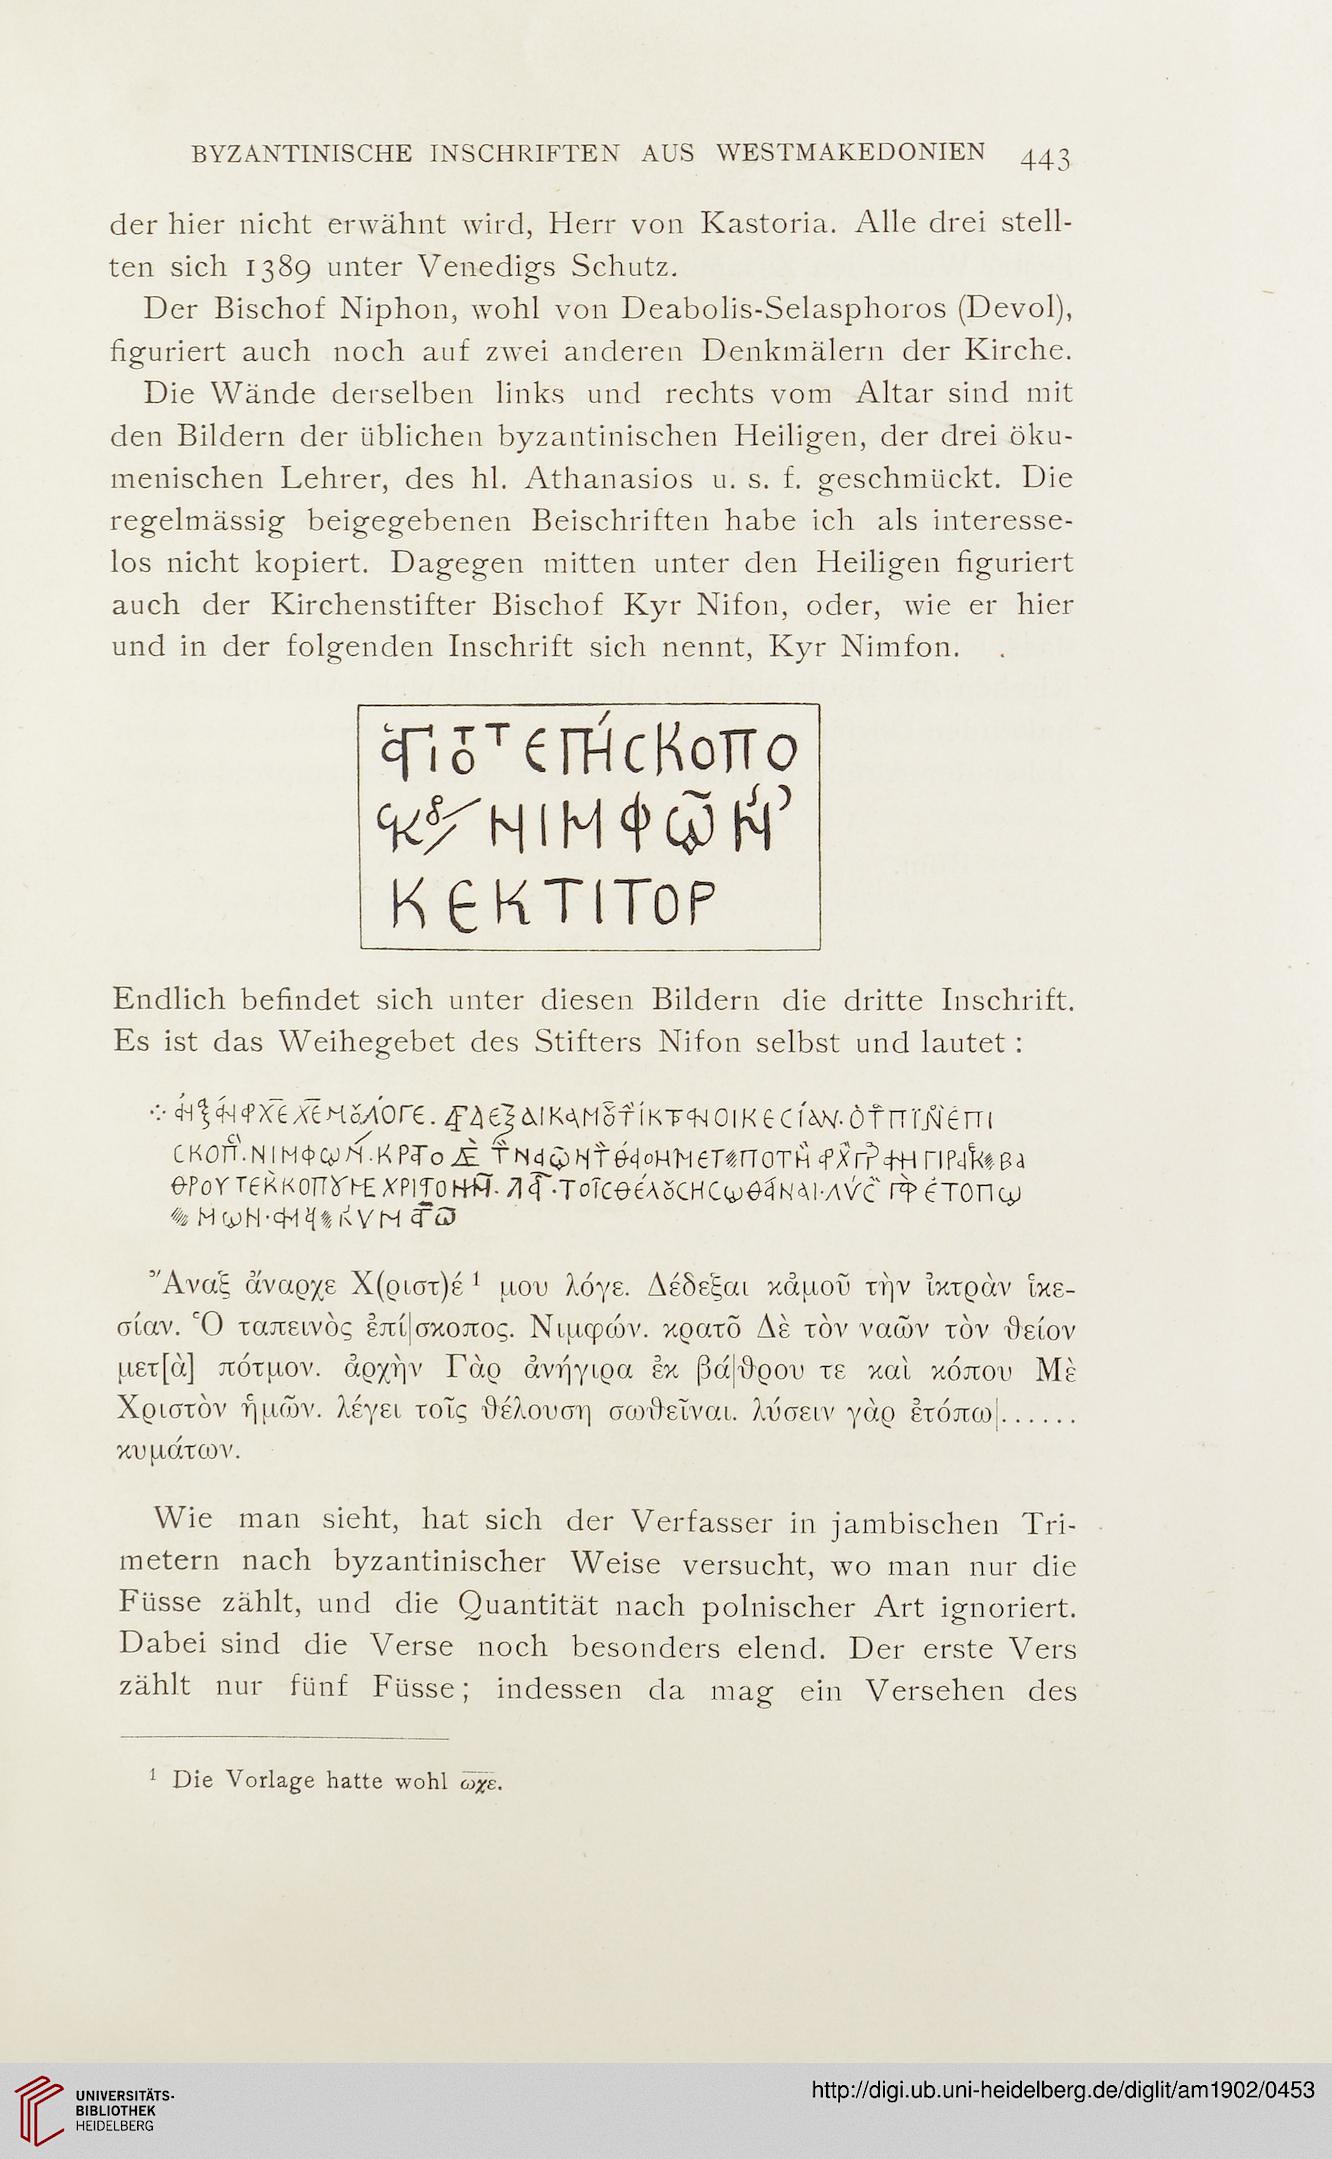 BYZANTINISCHE INSCHRIFTEN AUS WESTMAKEDONIEN 443
der hier nicht erwähnt wird, Herr von Kastoria. Alle drei stell-
ten sich 1389 unter Venedigs Schutz.
Der Bischof Niphon, wohl von Deabolis-Selasphoros (Devol),
figuriert auch noch auf zwei anderen Denkmälern der Kirche.
Die Wände derselben links und rechts vom Altar sind mit
den Bildern der üblichen byzantinischen Heiligen, der drei öku-
menischen Lehrer, des hl. Athanasios u. s. f. geschmückt. Die
regelmässig beigegebenen Beischriften habe ich als interesse-
los nicht kopiert. Dagegen mitten unter den Heiligen figuriert
auch der Kirchenstifter Bischof Kyr Nifon, oder, wie er hier
und in der folgenden Inschrift sich nennt, Kyr Nimfon.
ΕΠΗCΚΟΠΟ
ΝΙΜΦῶΝ
ΚΕΚΤΙΤΟΡ
Endlich befindet sich unter diesen Bildern die dritte Inschrift.
Es ist das Weihegebet des Stifters Nifon selbst und lautet :
Ἄναξ ἄναρχε Χ(ριστ)έ ¹ μου λόγε. Δέδεξαι κἀμοῦ τὴν ἰκτρὰν ἱκε-
σίαν. Ὁ ταπεινὸς ἐπί|σκοπος. Νιμφών. κρατõ Δὲ τὸν ναῶν τὸν θείον
μετ[ὰ] πότμον. ἀρχὴν Γὰρ ἀνήγιρα ἐκ βά|θρου τε καὶ κόπου Μὲ
Χριστὸν ἡμῶν. λέγει τοῖς θέλουση σωθεῖναι. λύσειν γὰρ ἐτόπω|......
κυμάτων.
Wie man sieht, hat sich der Verfasser in jambischen Tri-
metern nach byzantinischer Weise versucht, wo man nur die
Füsse zählt, und die Quantität nach polnischer Art ignoriert.
Dabei sind die Verse noch besonders elend. Der erste Vers
zählt nur fünf Füsse; indessen da mag ein Versehen des
¹ Die Vorlage hatte wohl ωχε.
UNIVERSITÄTS-
BIBLIOTHEK
HEIDELBERG
http://digi.ub.uni-heidelberg.de/diglit/am1902/0453